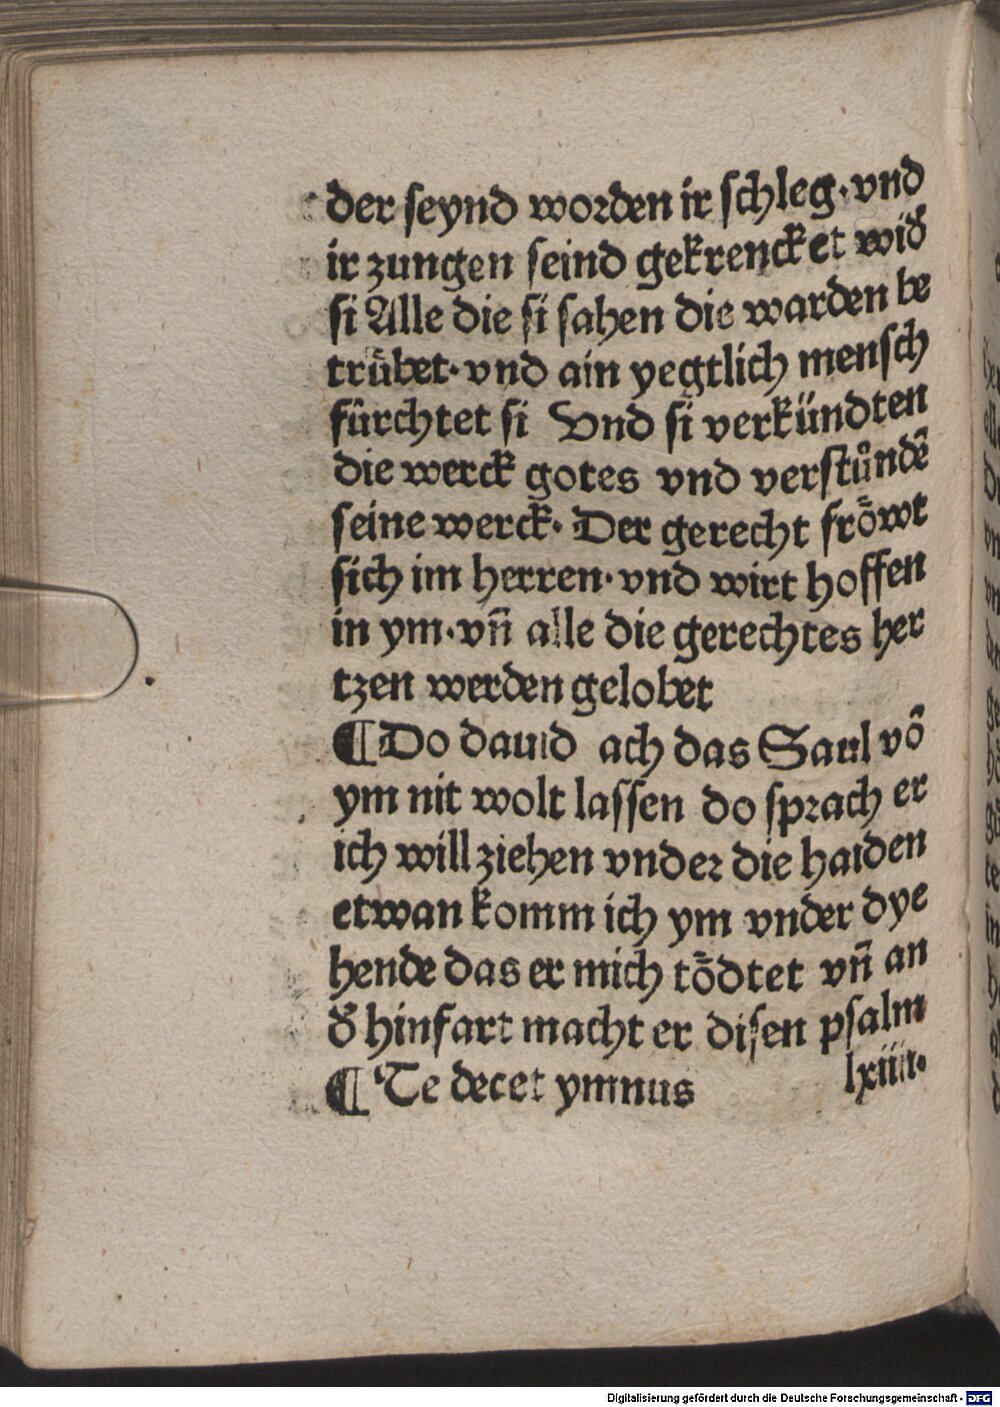 der seynd worden ir schleg·vnd
ir zungen seind gekrencket wid̕
si Alle die si sahen die warden be
trůbet·vnd ain yegtlich mensch
fůrchtet si Vnd si verkündten
die werck gotes vnd verstůndē
seine werck· Der gerecht frȫwt
sich im herren·vnd wirt hoffen
in ym·vn̄ alle die gerechtes her
tzen werden gelobet
¶Do dauid ach das Saul vō
ym nit wolt lassen do sprach er
ich will ziehen vnder die haiden
etwan komm ich ym vnder dye
hende das er mich tȫdtet vn̄ an
d̕ hinfart macht er disen psalm
¶Te decet ymnus lxiiii·
Digitalisierung gefördert durch die Deutsche Forschungsgemeinschaft - DFG